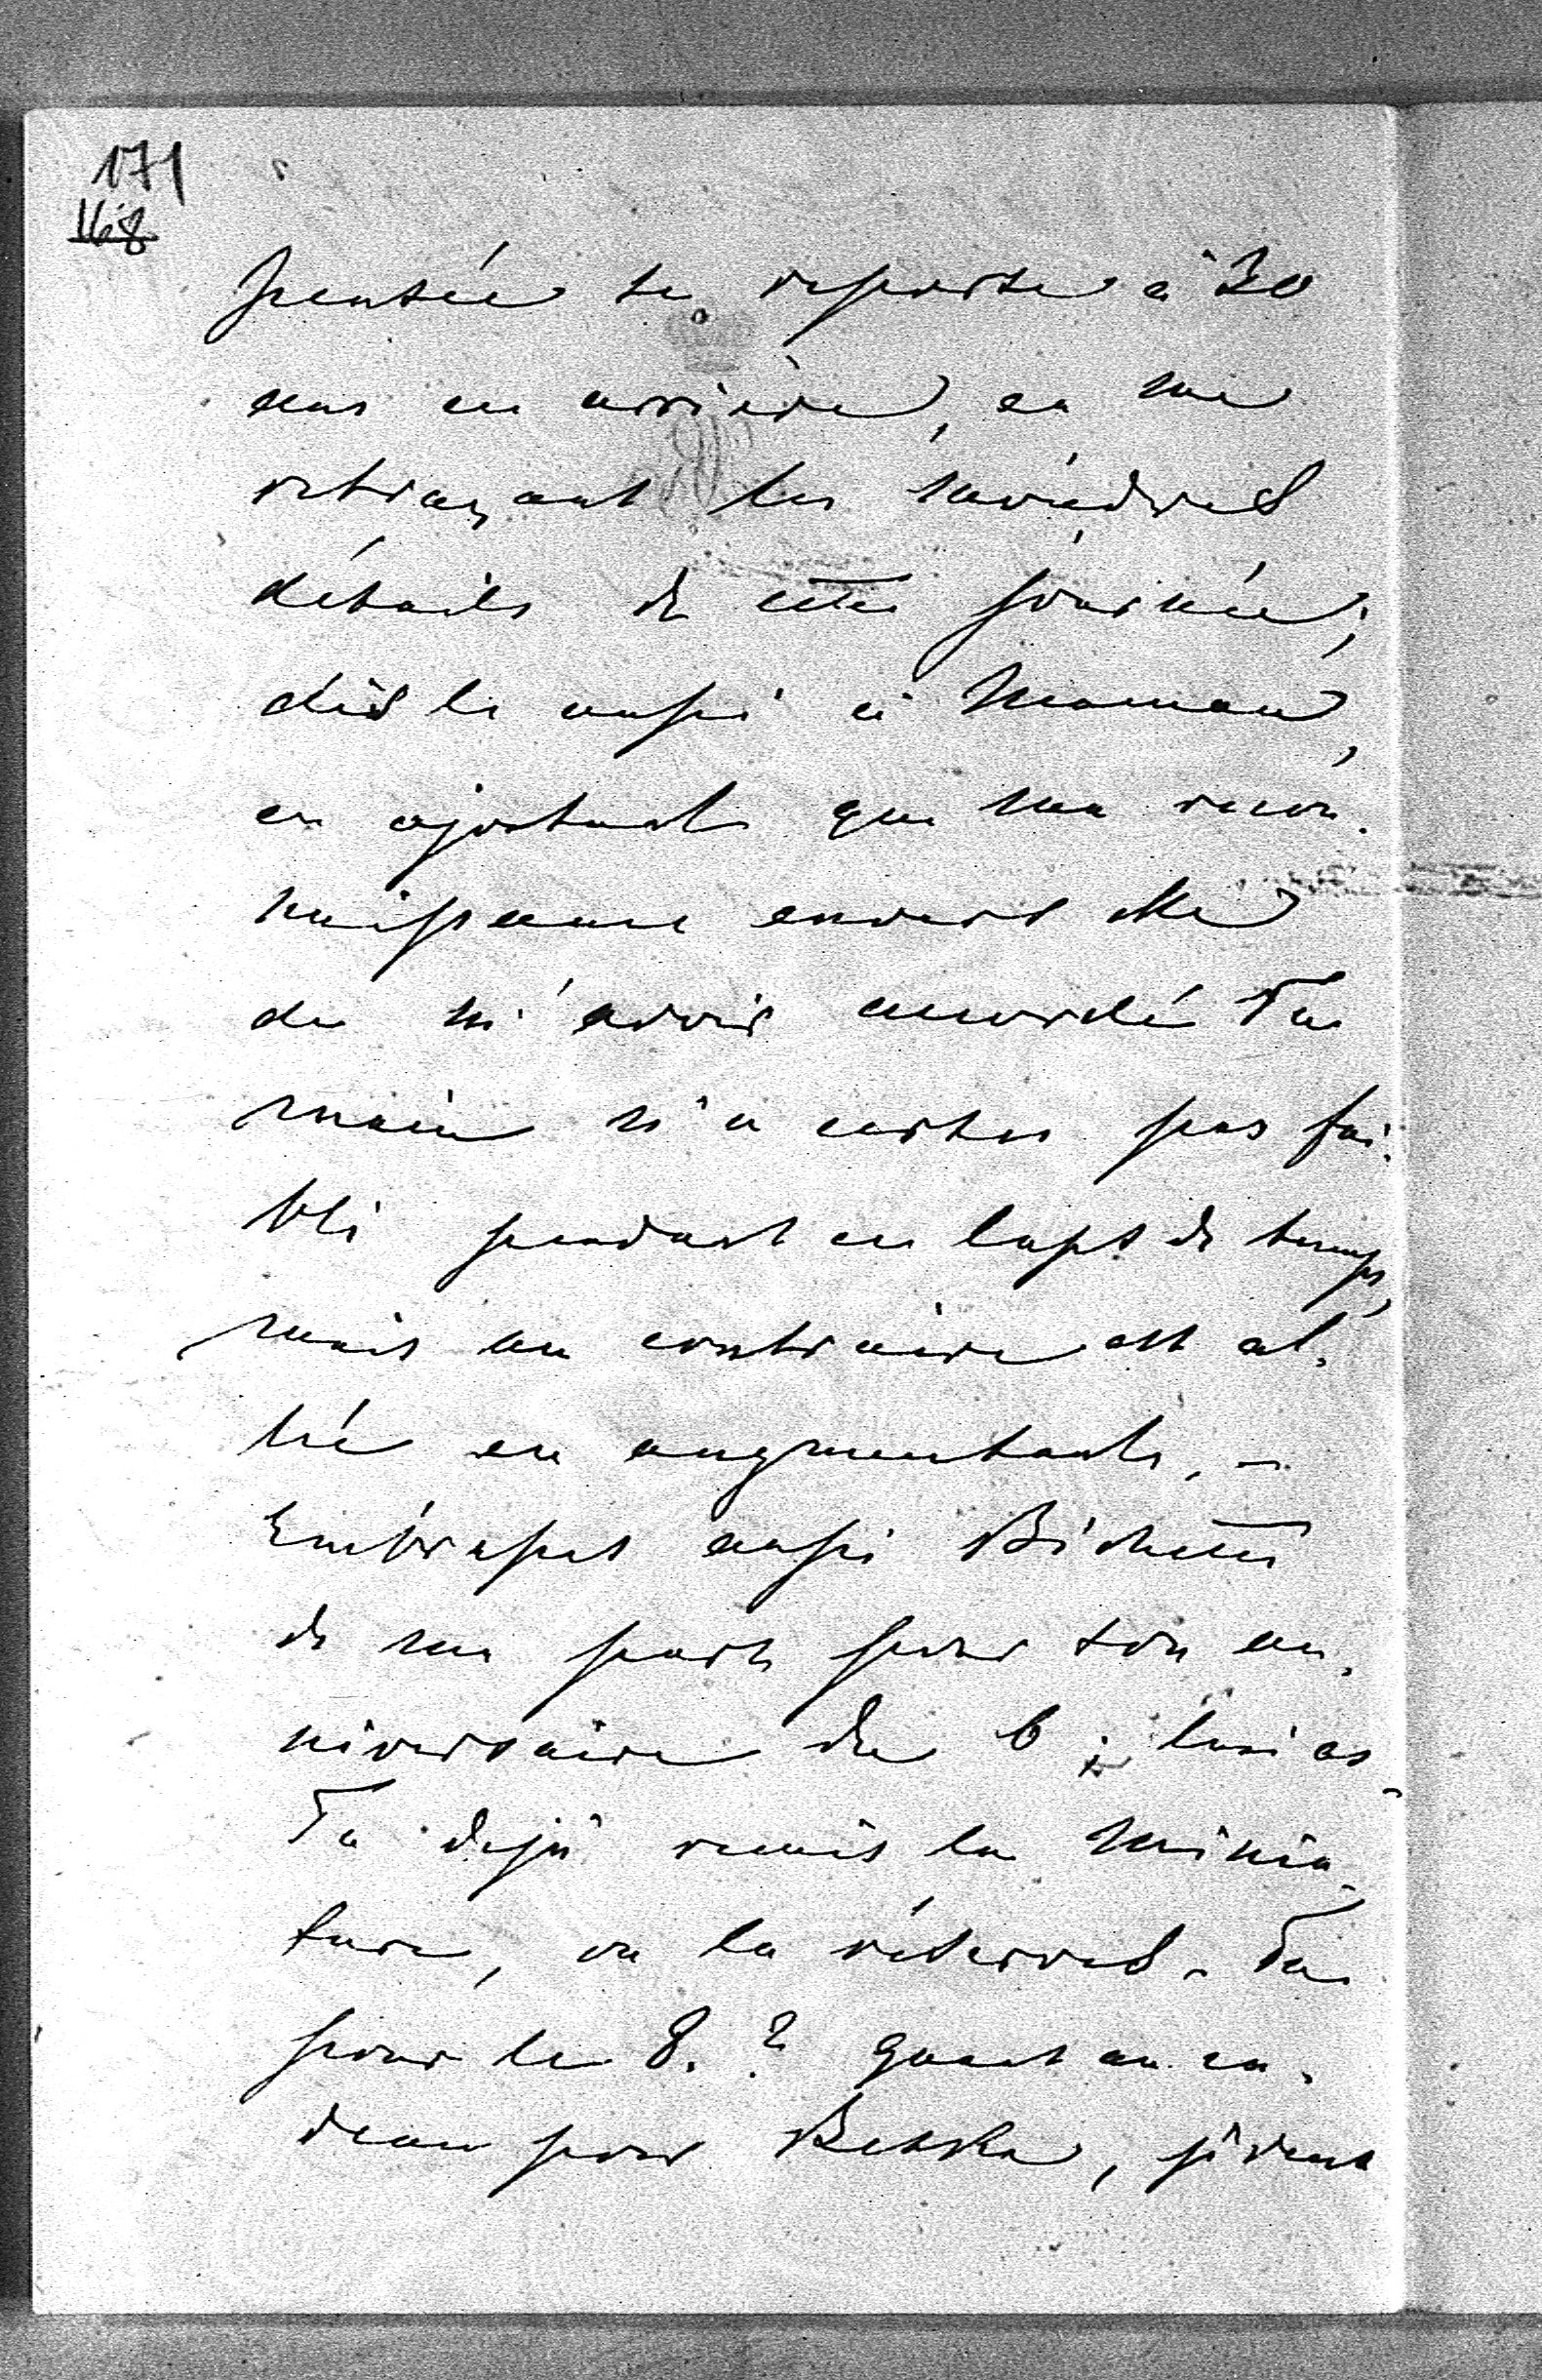 171
168
pensée se reporte à 30
ans en arrière, en me
retraçant les moindres
détails de cette journée;
dis le aussi à Maman,
en ajoutant que ma recon-
naissance envers elle
de m'avoir accordé Ta
main n'a certes pas fai-
bli pendant ce laps de temps,
mais au contraire est al-
lée en augmentant. –
Embrasses aussi Bichette
de ma part pour son an-
niversaire du 6; lui as-
Tu déjà remis la minia-
ture, ou la réserves-Tu
pour le 8.? Quant au ca-
deau pour Betska,